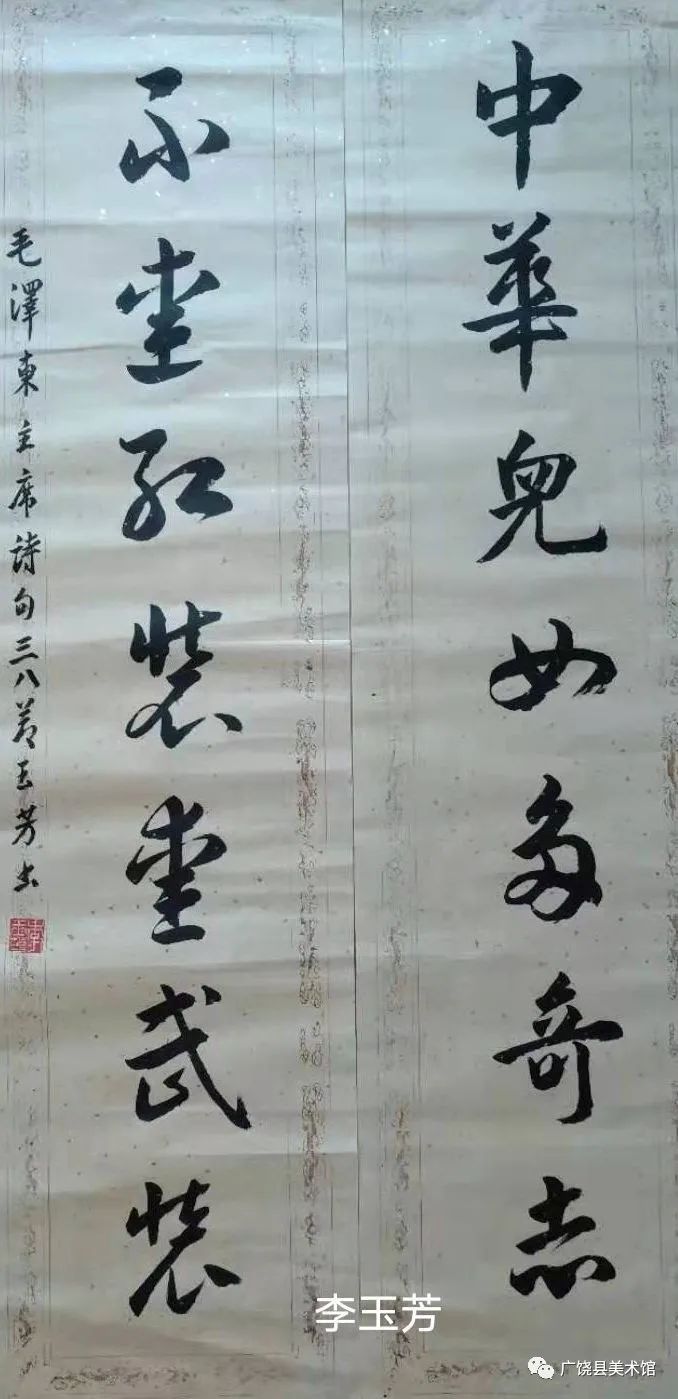 中華兒女多奇志
不愛紅裝愛武裝
毛澤東主席詩句三八節玉芳书
李玉芳
广饶县美术馆